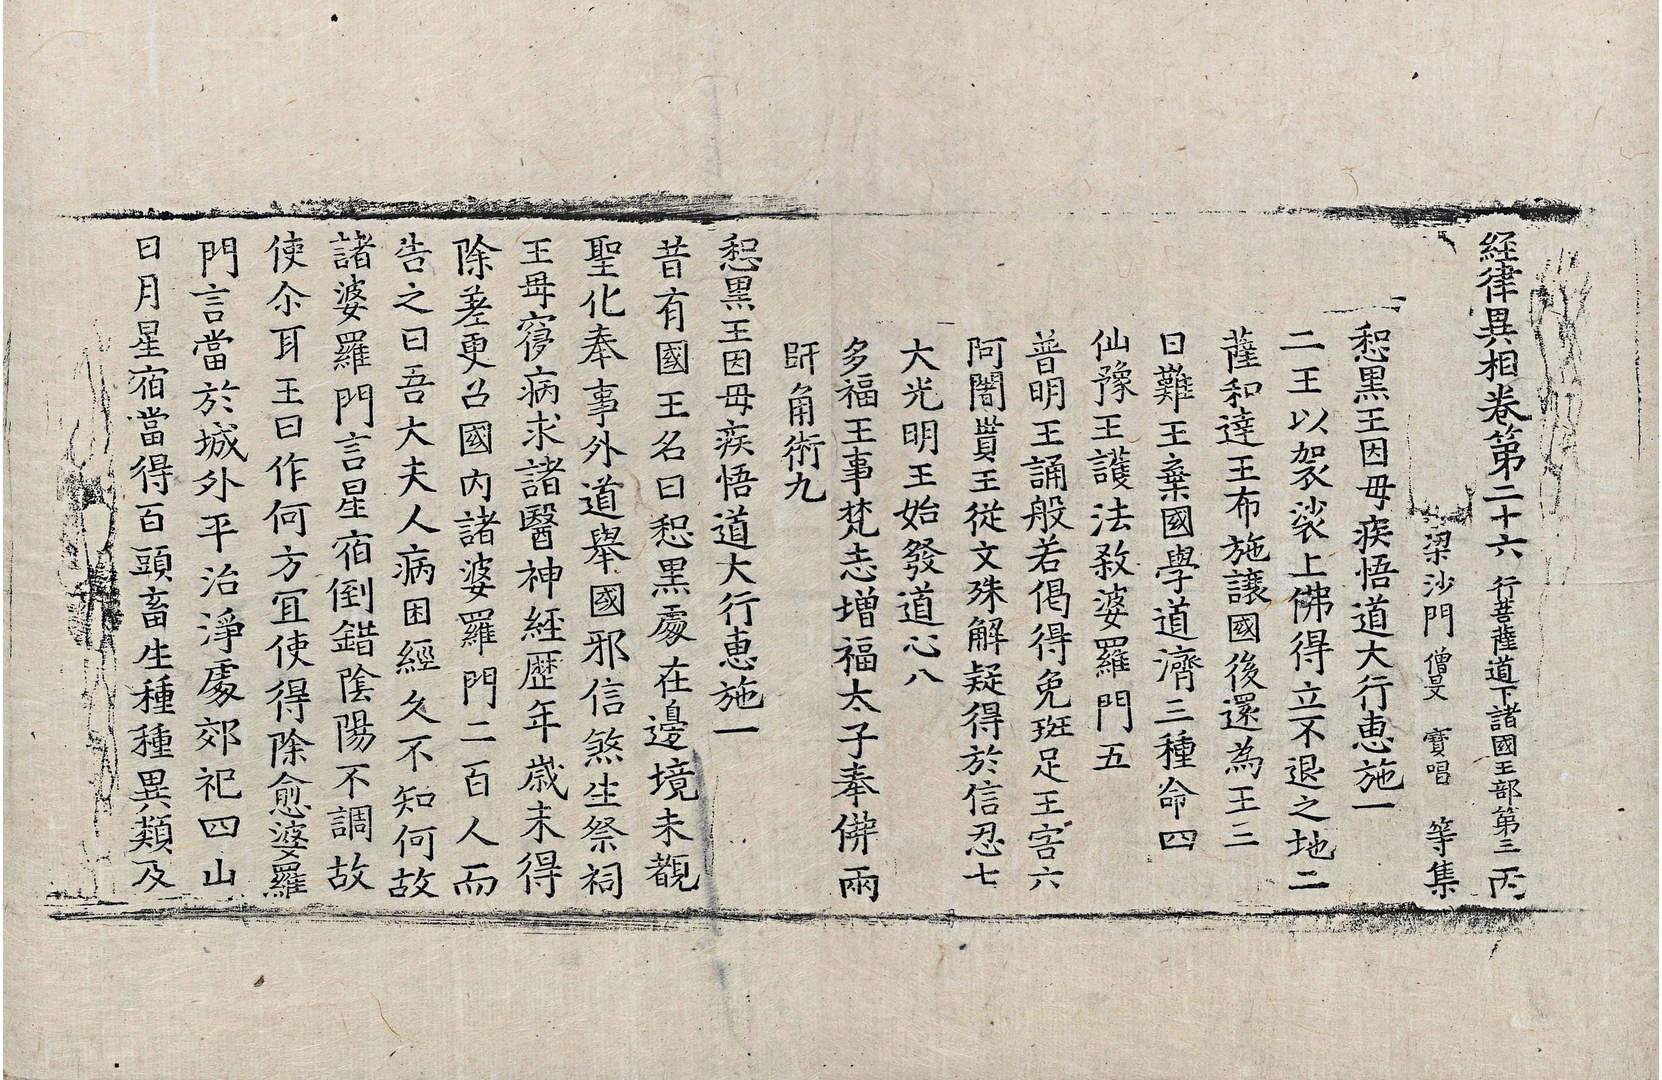 経律異相卷第二十六 行菩薩道下諸國王部第三 丙
梁沙門 僧旻 寶唱 等集
惒黒王因毋疾悟道大行惠施一
二王以袈裟上佛得立不退之地二
薩和達王布施讓國後還為王三
日難王棄國學道濟三種命四
仙豫王護法殺婆羅門五
普明王誦般若偈得免班足王害六
阿闍貰王從文殊解疑得於信忍七
大光明王始發道心八
多福王事梵志增福太子奉佛兩
䚽角術九
惒黒王因毋疾悟道大行惠施一
昔有國王名曰惒黒處在邊境未覩
聖化奉事外道舉國邪信煞生祭祠
王毋寢病求諸醫神經歷年歲未得
除差更召國內諸婆羅門二百人而
告之曰吾大夫人病困經久不知何故
諸婆羅門言星宿倒錯陰陽不調故
使尒耳王曰作何方冝使得除愈婆羅
門言當於城外平治淨處郊祀四山
日月星宿當得百頭畜生種種異類及